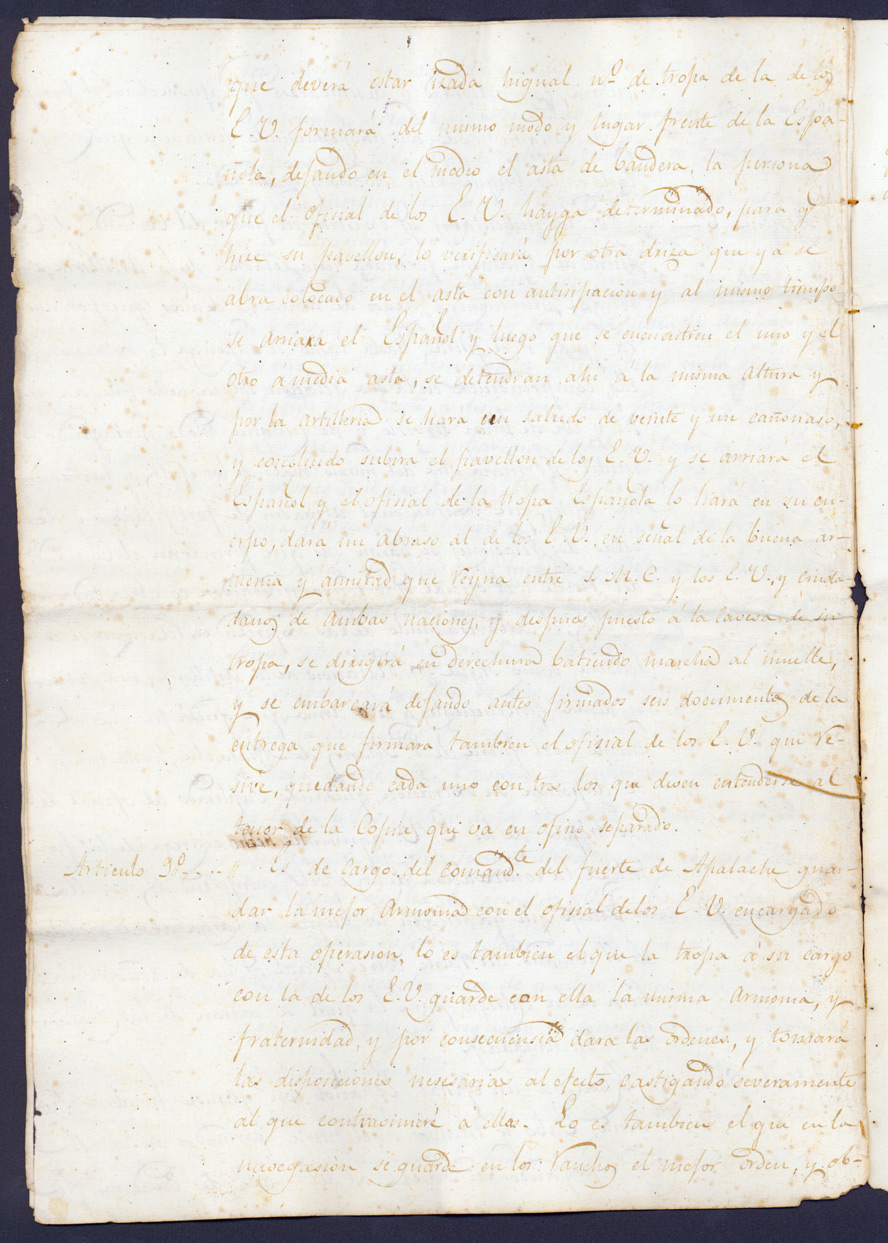 que deverá estar izada higual nº. de tropa de la de los
E. V. formará del mismo modo y lugar frente de la Espa-
ñola, defando en el medio el asta de bandera, la persona
que el oficial de los E. V. hayga determinado, para q.
hice su pavellon, lo verificará por otra driza que ya se
abra colocado en el asta con antisipacion y al mismo tiempo
se arriara el Español y luego que se encuentren el uno y el
otro á media asta, se detendran ahi á la misma altura y
por la artilleria se hará un saludo de veinte y un cañonaso,
y concluido subirá el pavellon de los E. V. y se arriará el
Español y el ofisial de la tropa Española lo hará en su cu-
erpo, dará un abraso al de los E. V. en señal de la buena ar-
monia y amistad que reyna entre S. M. C. y los E. V., y ciuda
danos de ambas naciones, y despues puesto á la cavesa de su
tropa, se dirigirá en derechura batiendo marcha al muelle,
y se embarcará defando antes firmados seis documentos de la
entrega que firmará tambien el ofisial de los E. V. que re-
sive, quedando cada uno con tres los que deven entenderse al
tenor de la Copia que va en ofisio separado.
Articulo 9º. . . . " Es de cargo del comandte. del fuerte de Apalache guar-
dar la mefor armonia con el ofisial de los E. V. encargado
de esta operasion, lo es tambien el que la tropa á su cargo
con la de los E. V. guarde con ella la misma armonia, y
fraternidad, y por consecuensia dara las ordenes, y tomará
las disposiciones nesesarias al efecto, castigando severamente
al que contraviniere á ellas. Lo es tambien el que en la
navegasion se guarde en los ranchos el mefor orden, y ob-